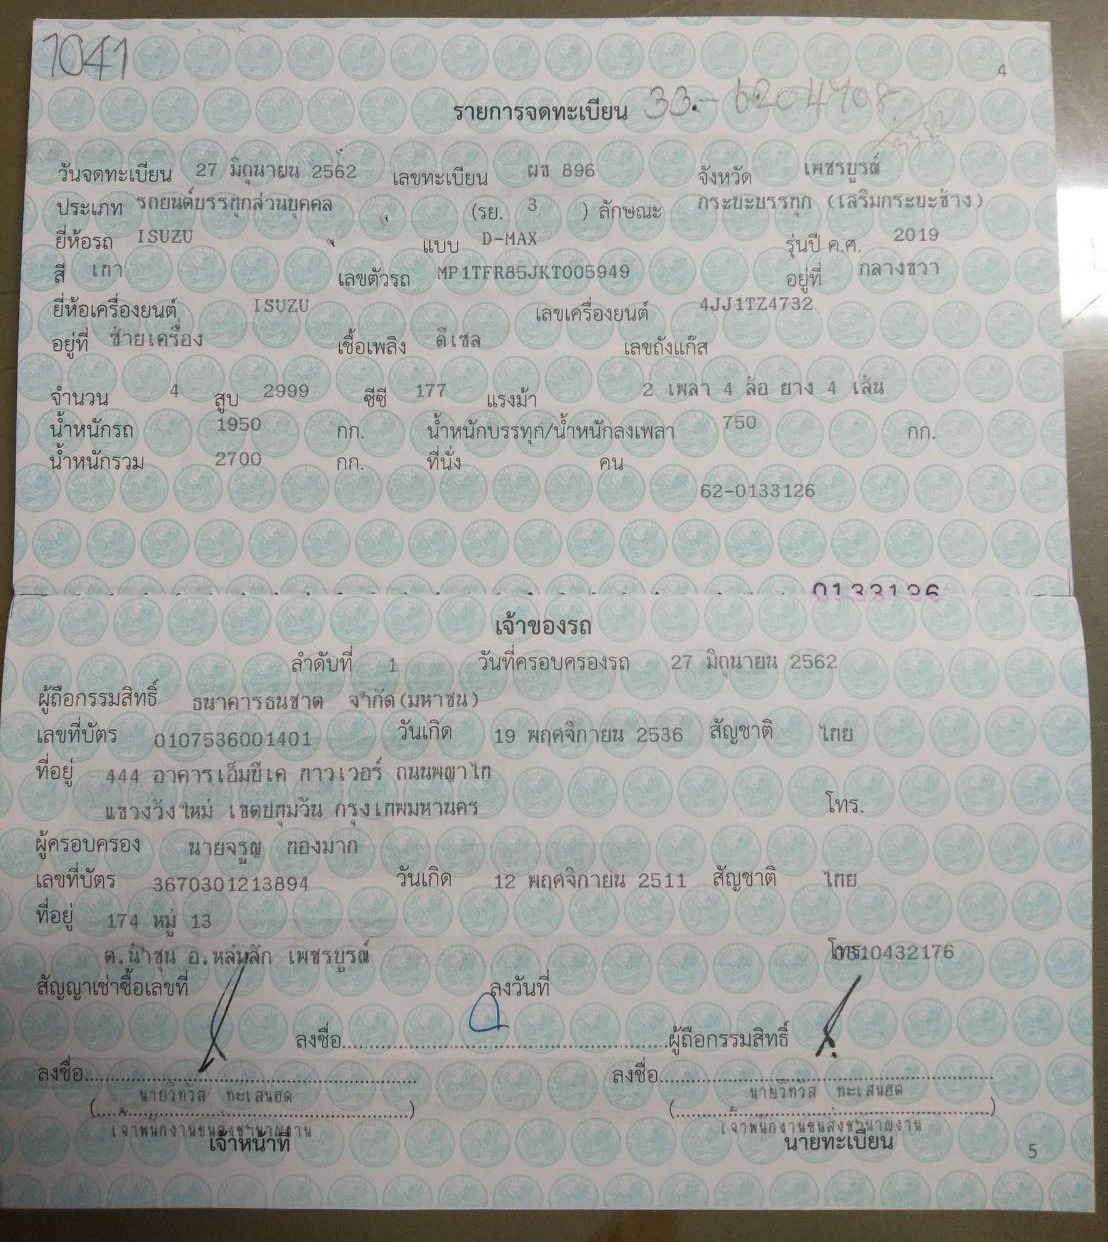 1041
4
รายการจดทะเบียน 33.-6204408
วันจดทะเบียน 27 มิถุนายน 2562 เลขทะเบียน ผข 896 จังหวัด เพชรบูรณ์
ประเภท รถยนต์บรรทุกส่วนบุคคล (รย. 3 ) ลักษณะ กระบะบรรทุก (เสริมกระบะข้าง)
ยี่ห้อรถ ISUZU แบบ D-MAX รุ่นปี ค.ศ. 2019
สี เทา เลขตัวรถ MP1TFR85JKT005949 อยู่ที่ กลางขวา
ยี่ห้อเครื่องยนต์ ISUZU เลขเครื่องยนต์ 4JJ1TZ4732
อยู่ที่ ซ้ายเครื่อง เชื้อเพลิง ดีเซล เลขถังแก๊ส
จำนวน 4 สูบ 2999 ซีซี 177 แรงม้า 2 เพลา 4 ล้อ ยาง 4 เส้น
น้ำหนักรถ 1950 กก. น้ำหนักบรรทุก/น้ำหนักลงเพลา 750 กก.
น้ำหนักรวม 2700 กก. ที่นั่ง คน
62-0133126
0133126
เจ้าของรถ
ลำดับที่ 1 วันที่ครอบครองรถ 27 มิถุนายน 2562
ผู้ถือกรรมสิทธิ์ ธนาคารธนชาต จำกัด(มหาชน)
เลขที่บัตร 0107536001401 วันเกิด 19 พฤศจิกายน 2536 สัญชาติ ไทย
ที่อยู่ 444 อาคารเอ็มบีเค ทาวเวอร์ ถนนพญาไท
แขวงวังใหม่ เขตปทุมวัน กรุงเทพมหานคร โทร.
ผู้ครอบครอง นายจรูญ ทองมาก
เลขที่บัตร 3670301213894 วันเกิด 12 พฤศจิกายน 2511 สัญชาติ ไทย
ที่อยู่ 174 หมู่ 13
ต.น้ำชุน อ.หล่มสัก เพชรบูรณ์ โทร. 0810432176
สัญญาเช่าซื้อเลขที่ ลงวันที่
ลงชื่อ ผู้ถือกรรมสิทธิ์
ลงชื่อ ลงชื่อ
(นายวิทวัส ทะเสนฮด) (นายวิทวัส ทะเสนฮด)
เจ้าพนักงานขนส่งชำนาญงาน เจ้าพนักงานขนส่งชำนาญงาน
เจ้าหน้าที่ นายทะเบียน
5